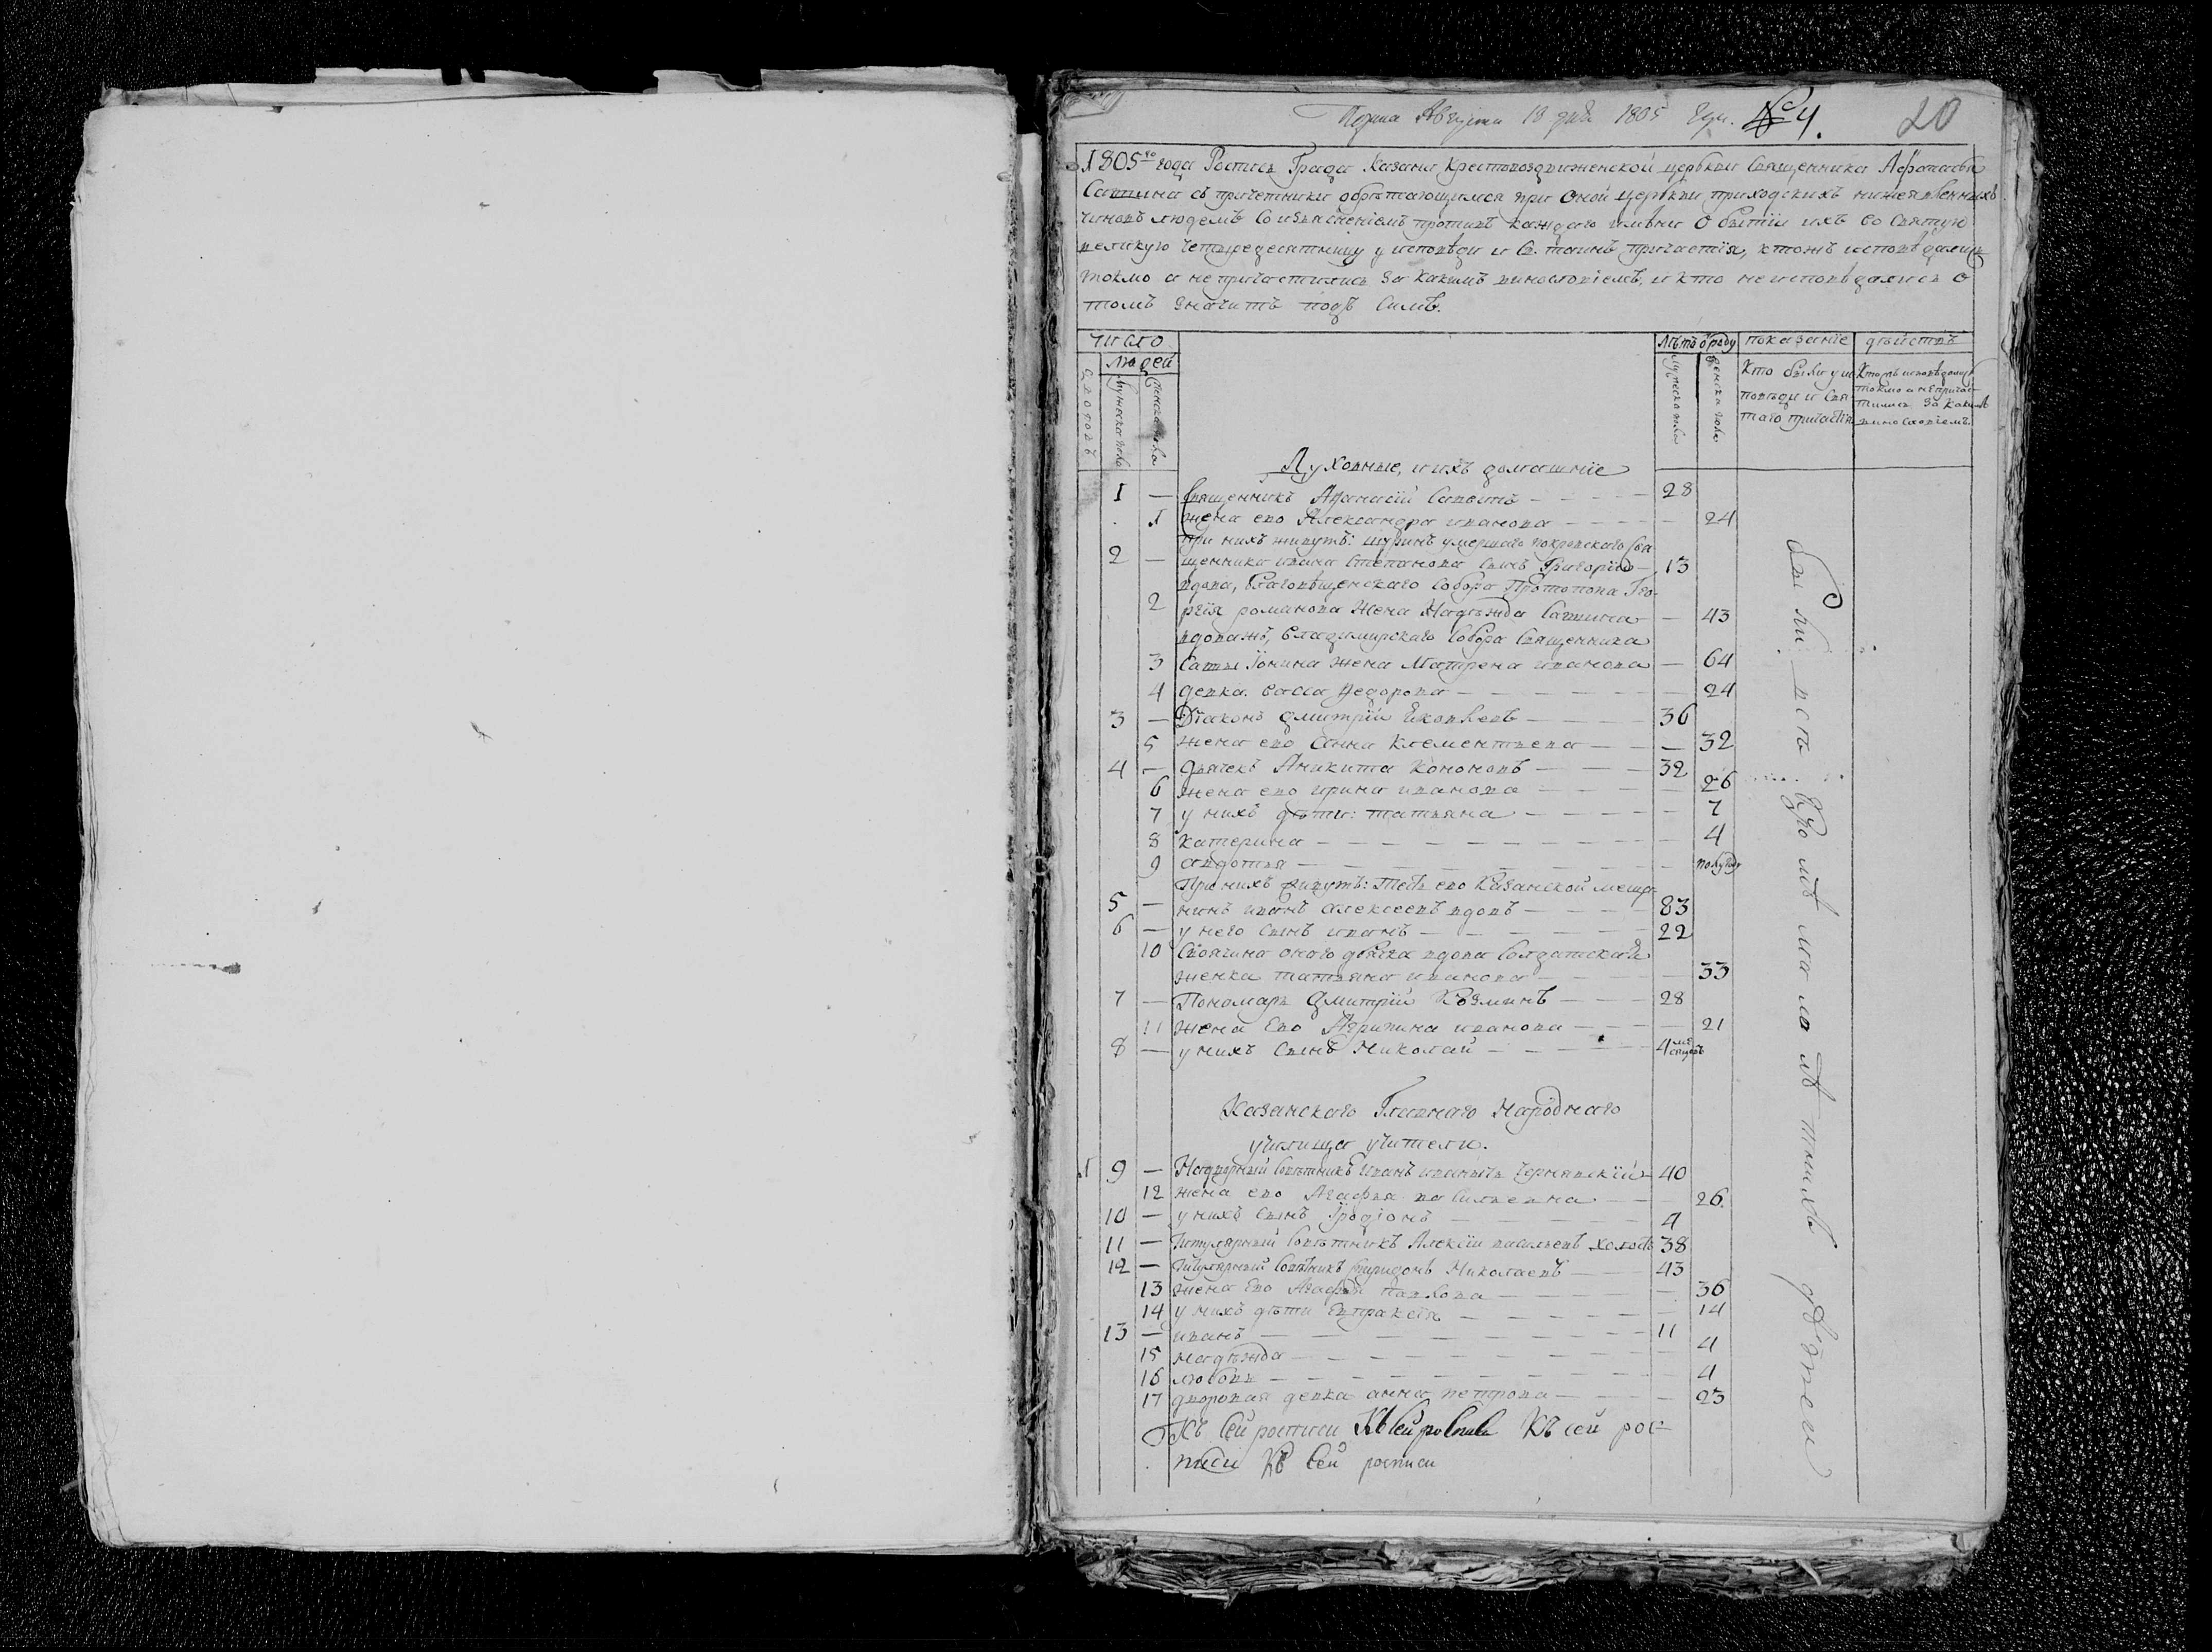 Августа 18 дня 1805 №4. 20
1805го года Роспись Града Казани Крестовоздвиженской церкви Священника Афонасья
Савина съ причетники обретающимся при оной церкви приходскихъ нижеявленныхъ
чиновъ людемъ со изъясненіемъ противъ каждаго имѣни о бытіи ихъ во святую
великую четыредесятницу у исповѣди и св. таинъ причастія, ктожъ исповѣдались
токмо а непричастились за какимъ винословіемъ, и кто неисповѣдались о
томъ значитъ подъ симъ.
число лѣтъ от роду показаніе дѣйствъ
людей
дворовъ мужеска пола женска пола мужеска пола женска пола
Кто были у ис
повѣди и свя
таго причастія
Ктожъ исповѣдался
токмо а непричас
тились за какимъ
винословіемъ
Духовные, и ихъ домашніе
1 — Священникъ Афанасій Савинъ — 28
1 жена ево Александра иванова — 24
при нихъ живутъ: шуринъ умершаго покровскаго свя
2 — щенника ивана степанова сынъ Григорій — 13
вдова, Благовѣщенскаго собора Протопопа Гео
2 ргія романова жена Надѣжда Савина — 43
вдоважъ, владимирскаго собора священника
3 Саввы Іонина жена Матрена иванова — 64
4 девка васса федорова — 24
3 — Діаконъ дмитрій Яковлевъ — 36
5 жена ево Анна клементьева — 32
4 — дьячекъ Аникита Кононовъ — 32
6 жена ево ирина иванова — 26
7 у нихъ дѣти: татьяна — 7
8 катерина — 4
9 авдотья — полугоду
При нихъ живутъ: тесть ево Казанской меща
5 — нинъ иванъ алексеевъ вдовъ — 83
6 — у него сынъ иванъ — 22
10 Своячина оного дьячка вдова солдатская
женка татьяна иванова — 33
7 — Пономарь Дмитрій Козминъ — 28
11 жена Ево Агрипина иванова — 21
8 — у нихъ сынъ Николай — 4 мѣсяцовъ
Казанскаго Главнаго Народнаго
училища учители.
1 9 — Надворный Совѣтникъ Иванъ иванычь Чернявскій — 40
12 жена ево Агафья васильевна — 26
10 — у нихъ сынъ Іродіонъ — 4
11 — Титулярный совѣтникъ Алексіи васильевъ холостъ 38
12 — Титулярный Совѣтникъ спиридонъ Николаевъ — 43
13 жена Ево Агафья павлова — 36
14 у нихъ дѣти Евпраксія — 14
13 — иванъ — 11
15 надѣжда — 4
16 любовь — 4
17 дворовая девка анна петрова — 23
были вси кромѣ малолѣтнихъ дѣтеи
Къ Сей росписи Къ сей росписи Къ сей рос
писи Къ Сей росписи